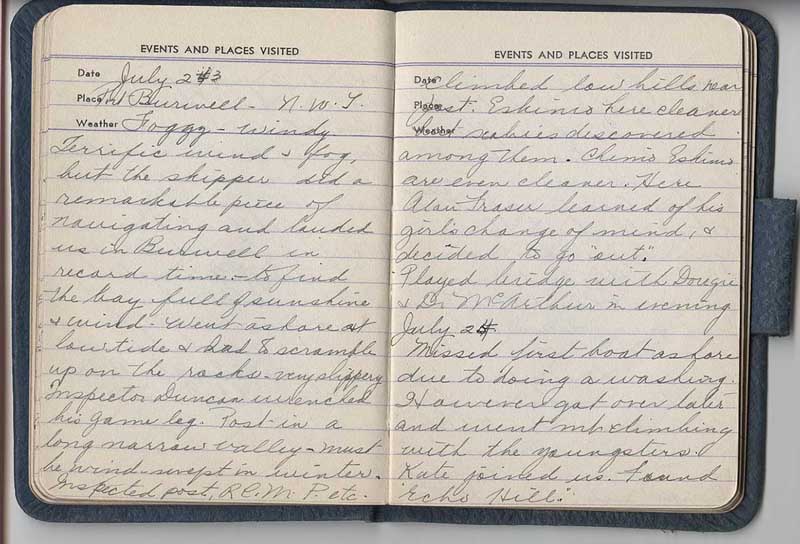 EVENTS AND PLACES VISITED
Date July 23
Place Pt Burwell - N.W.T.
Weather Foggy - windy
Terrific wind & fog,
but the skipper did a
remarkable piece of
navigating and landed
us in Burwell in
record time - to find
the bay full of sunshine
& wind. Went ashore at
low tide & had to scramble
up on the rocks - very slippery
Inspector Duncan wrenched
his game leg. Post in a
long narrow valley - must
be wind-swept in winter.
Inspected post, R.C.M.P. etc.
EVENTS AND PLACES VISITED
Date Climbed low hills near
Place post. Eskimo here cleaner
Weather but scabies discovered
among them. Chimo Eskimo
are even cleaner. Here
Alan Fraser learned of his
girl's change of mind, &
decided to go "out".
Played bridge with Dougie
& Dr McArthur in evening
July 24
Missed first boat ashore
due to doing a washing.
However got over later
and went mt climbing
with the youngsters.
Kate joined us. Found
"Echo Hill."